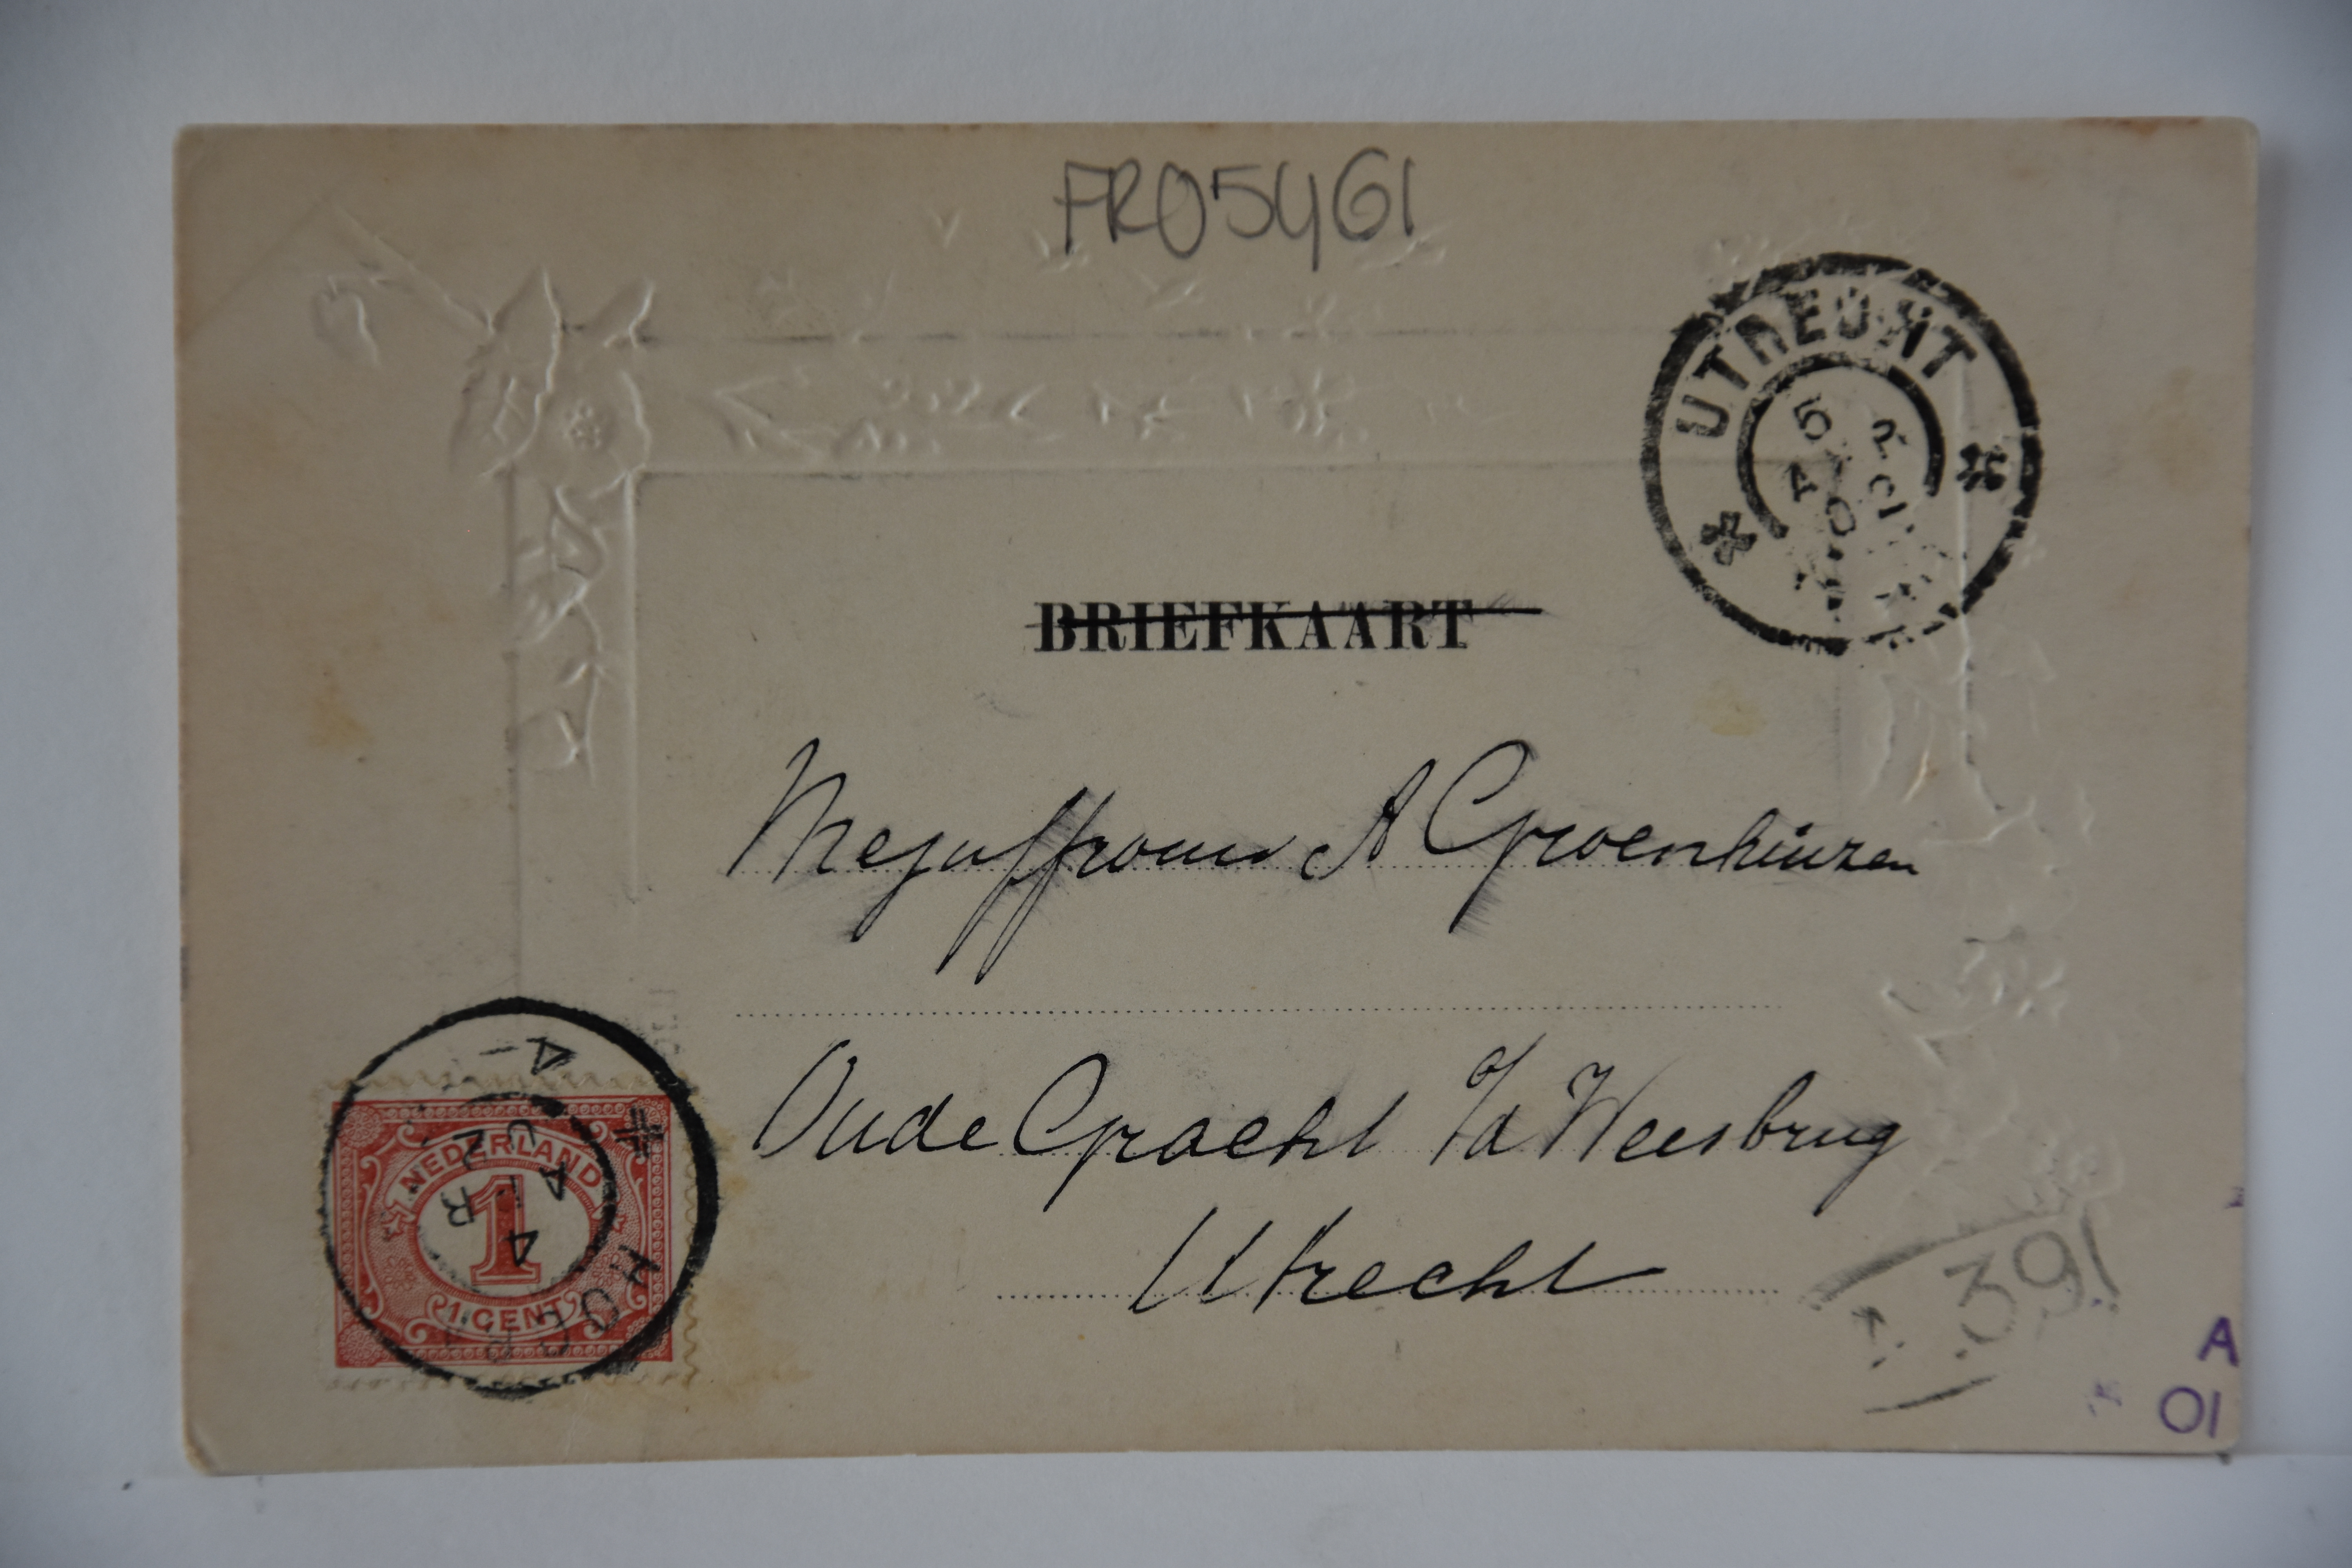 FR05461
UTRECHT
BRIEFKAART
Mejuffrouw A Groenhuizen
Oude Gracht o/d Weesbrug
Utrecht
NEDERLAND
1
1 CENT
391
A
01